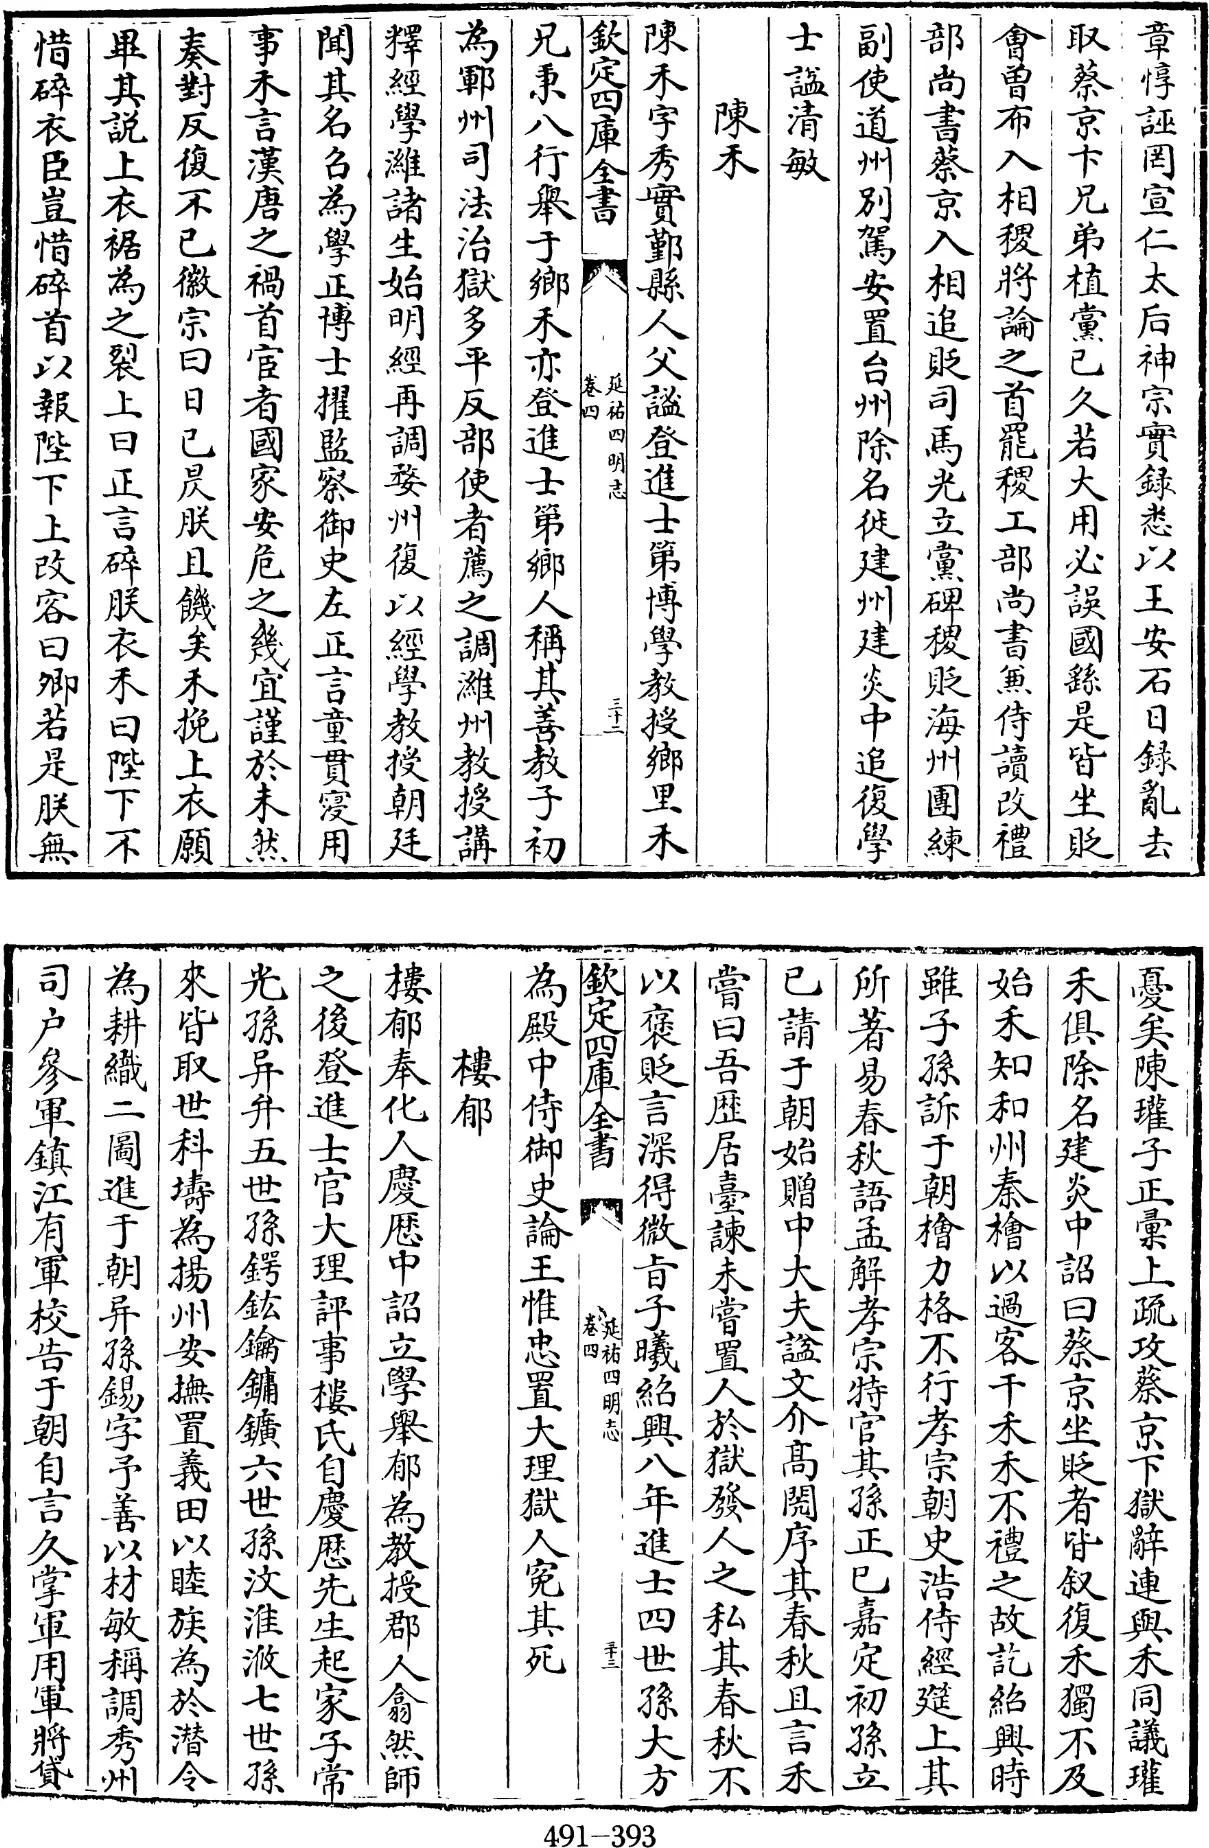 章惇誣罔宣仁太后神宗實録悉以王安石日録亂去
取蔡京卞兄弟植黨已久若大用必誤國繇是皆坐貶
會曾布入相稷將論之首罷稷工部尚書兼侍讀改禮
部尚書蔡京入相追貶司馬光立黨碑稷貶海州團練
副使道州別駕安置台州除名徙建州建炎中追復學
士謚清敏
陳禾
陳禾字秀實鄞縣人父謚登進士第博學教授鄉里禾
欽定四庫全書
延祐四明志
卷四
三十二
兄秉八行舉于鄉禾亦登進士第鄉人稱其善教子初
為鄆州司法治獄多平反部使者薦之調濰州教授講
釋經學濰諸生始明經再調婺州復以經學教授朝廷
聞其名召為學正博士擢監察御史左正言童貫寖用
事禾言漢唐之禍首宦者國家安危之幾宜謹於未然
奏對反復不已徽宗曰日已昃朕且饑矣禾挽上衣願
畢其說上衣裾為之裂上曰正言碎朕衣禾曰陛下不
惜碎衣臣豈惜碎首以報陛下上改容曰卿若是朕無
憂矣陳瓘子正彙上疏攻蔡京下獄辭連與禾同議瓘
禾俱除名建炎中詔曰蔡京坐貶者皆叙復禾獨不及
始禾知和州秦檜以過客干禾禾不禮之故訖紹興時
雖子孫訴于朝檜力格不行孝宗朝史浩侍經筵上其
所著易春秋語孟解孝宗特官其孫正已嘉定初孫立
已請于朝始贈中大夫謚文介髙閌序其春秋且言禾
嘗曰吾歴居臺諫未嘗置人於獄發人之私其春秋不
以褒貶言深得微旨子曦紹興八年進士四世孫大方
欽定四庫全書
延祐四明志
卷四
三十三
為殿中侍御史論王惟忠置大理獄人寃其死
樓郁
樓郁奉化人慶歴中詔立學舉郁為教授郡人翕然師
之後登進士官大理評事樓氏自慶歴先生起家子常
光孫异弁五世孫鍔鈜鑰鏞鑛六世孫汶淮㴋七世孫
來皆取世科壔為揚州安撫置義田以睦族為於潛令
為耕織二圖進于朝异孫錫字予善以材敏稱調秀州
司户參軍鎮江有軍校告于朝自言久掌軍用軍將貸
491-393